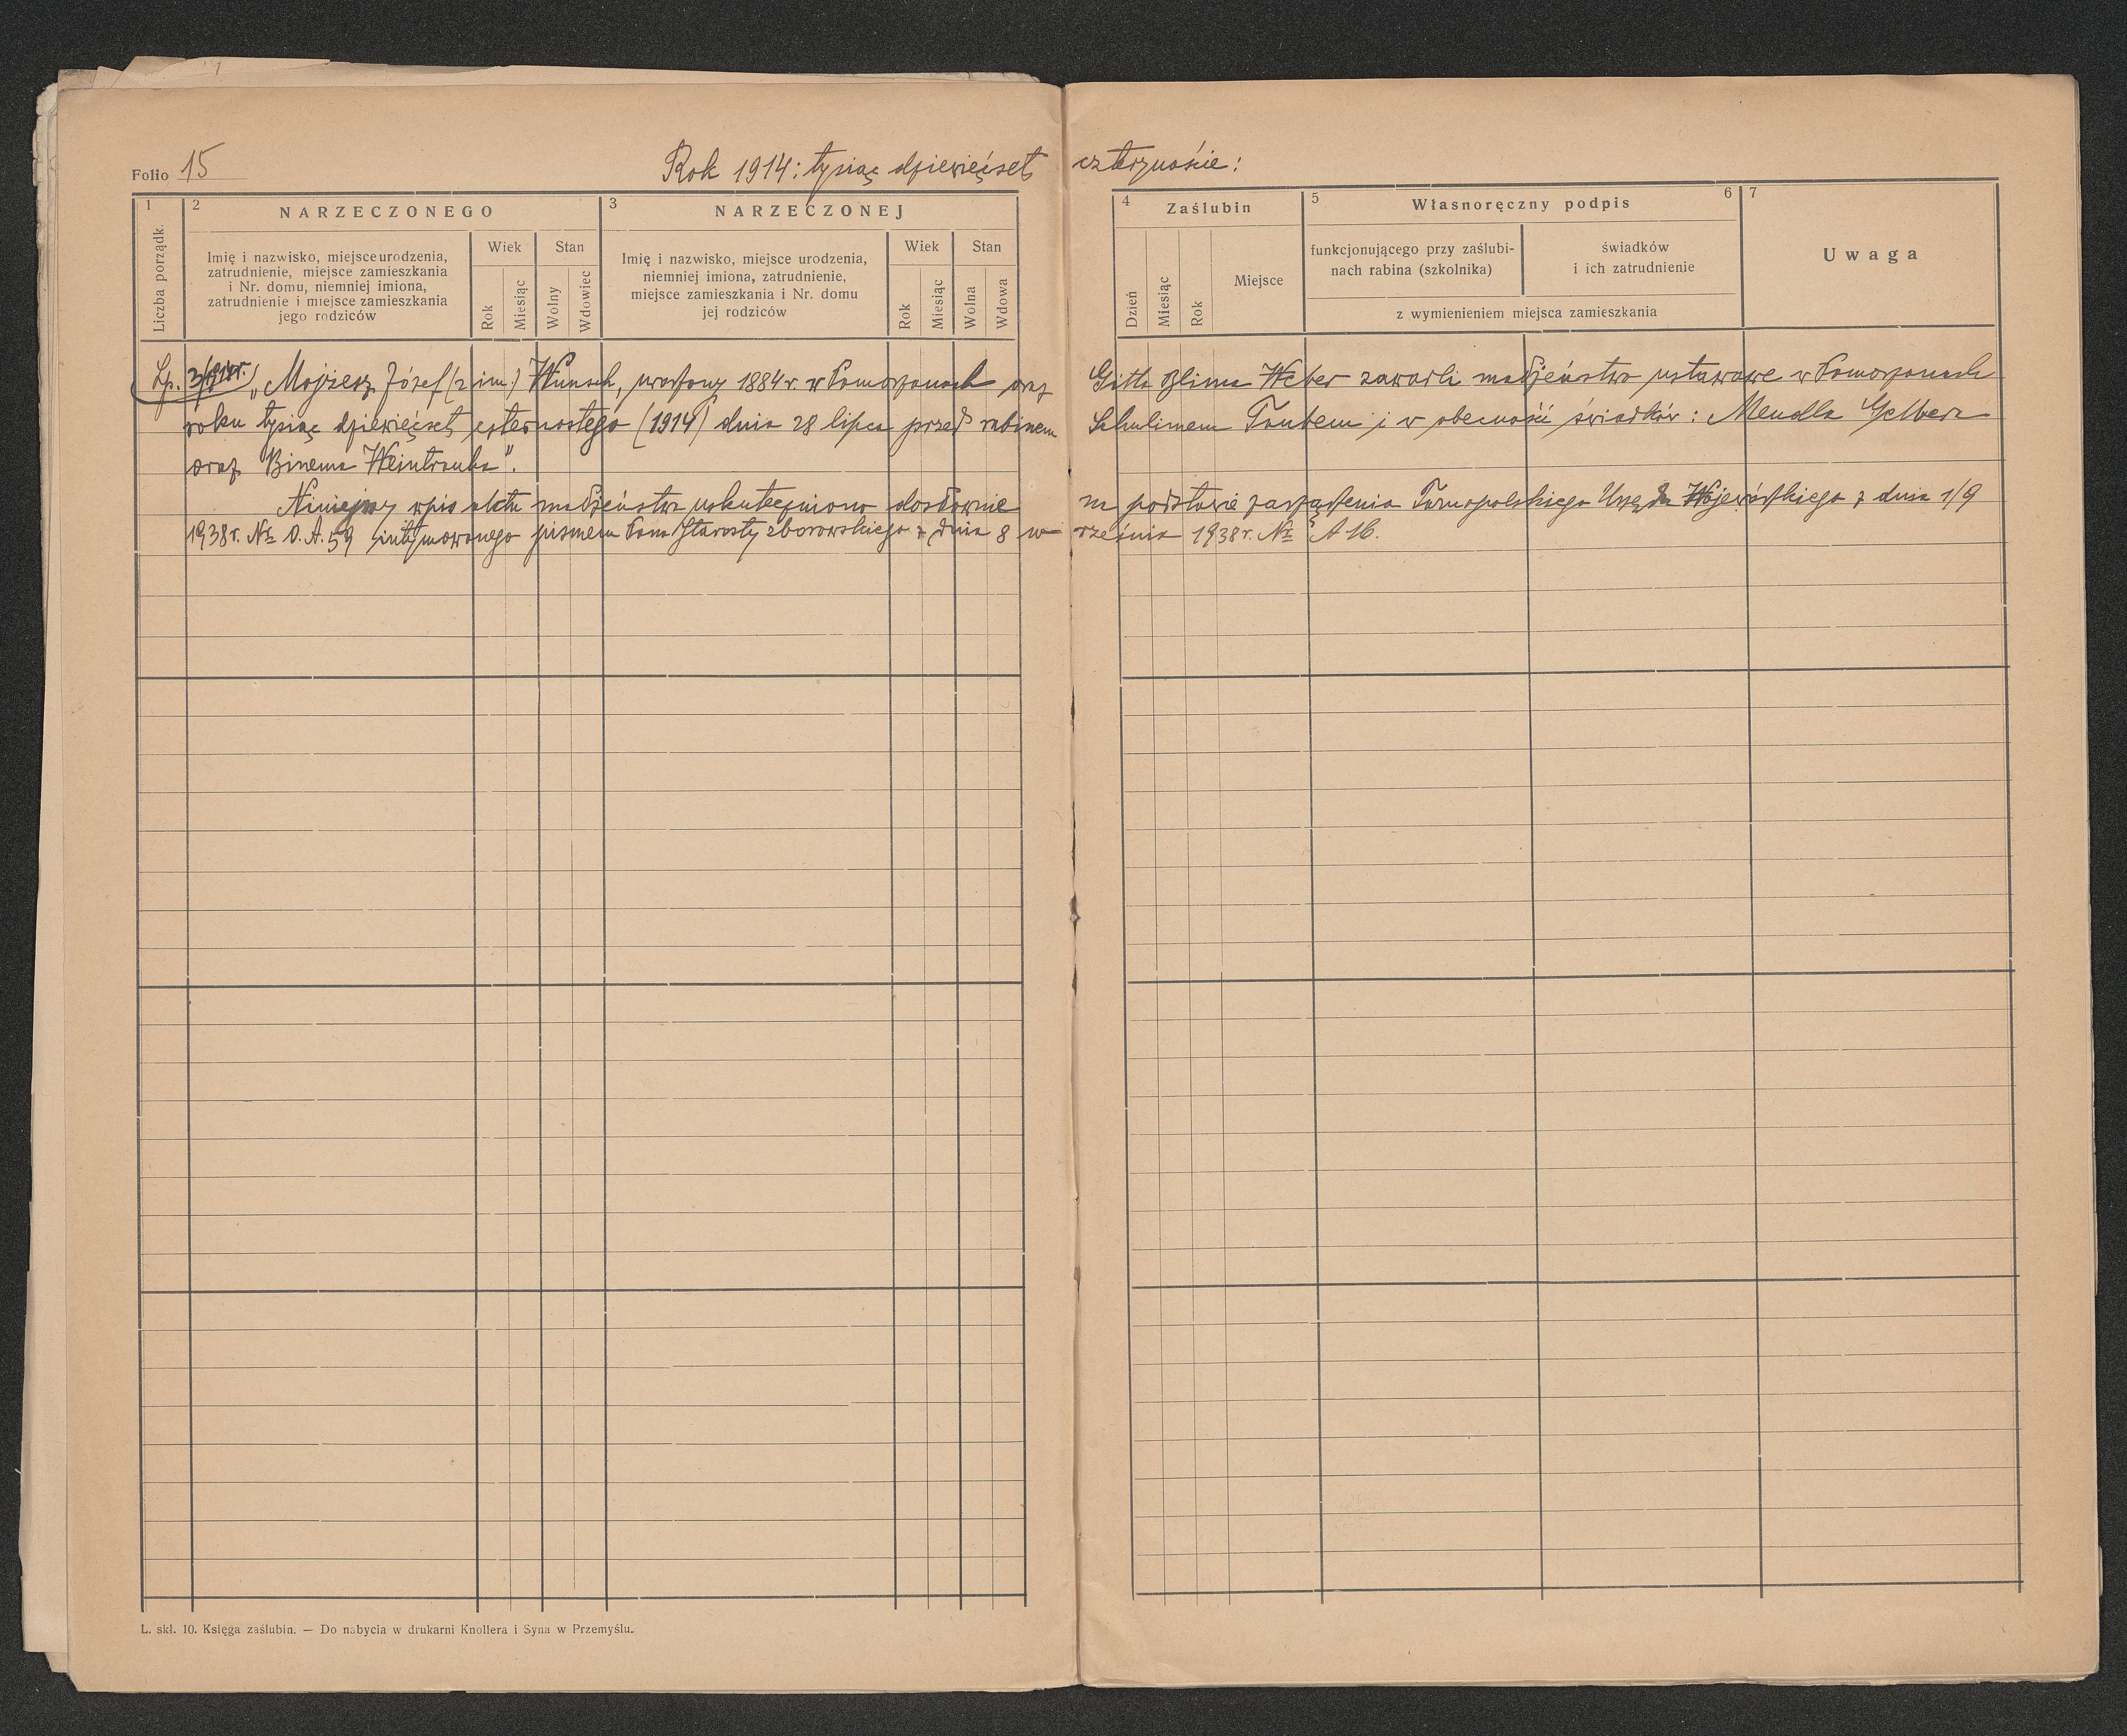 Folio 15
Rok 1914: tysiąc dziewięćset czternaście:
1
Liczba porządk.
2
NARZECZONEGO
Imię i nazwisko, miejsce urodzenia,
zatrudnienie, miejsce zamieszkania
i Nr. domu, niemniej imiona,
zatrudnienie i miejsce zamieszkania
jego rodziców
Wiek
Rok
Miesiąc
Stan
Wolny
Wdowiec
3
NARZECZONEJ
Imię i nazwisko, miejsce urodzenia,
niemniej imiona, zatrudnienie,
miejsce zamieszkania i Nr. domu
jej rodziców
Wiek
Rok
Miesiąc
Stan
Wolna
Wdowa
4
Zaślubin
Dzień
Miesiąc
Rok
Miejsce
5
Własnoręczny podpis
6
funkcjonującego przy zaślubi-
nach rabina (szkolnika)
świadków
i ich zatrudnienie
z wymienieniem miejsca zamieszkania
7
Uwaga
Lp. 3/1914r. „Mojżesz Józef (2 im.) Wunsch, urodzony 1884 r. w Pomorzanach oraz Gitla Blima Weber zawarli małżeństwo ustawowe w Pomorzanach
roku tysiąc dziewięćset czternastego (1914) dnia 28 lipca przed rabinem Schulimem Taubem i w obecność świadków: Mendla Gelbera
oraz Binema Weintrauba".
Niniejszy wpis aktu małżeństwa uskuteczniono dosłownie na podstawie zarządzenia Tarnopolskiego Urzędu Wojewódzkiego z dnia 1/9
1938 r. Nr O.A. 59 intymowanego pismem Pana Starosty zborowskiego z dnia 8 września 1938 r. Nr A 16.
L. skł. 10. Księga zaślubin. — Do nabycia w drukarni Knollera i Syna w Przemyślu.